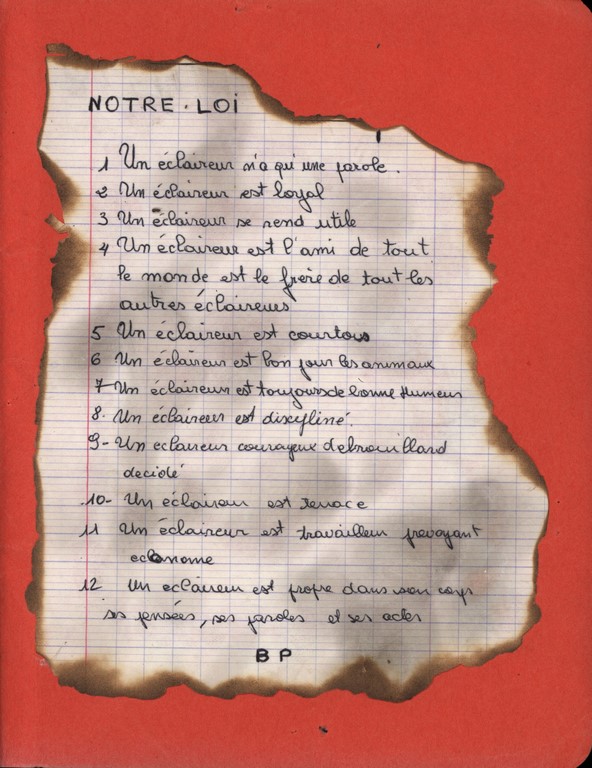 NOTRE. LOI
1 Un éclaireur n'a qu'une parole.
2 Un éclaireur est loyal
3 Un éclaireur se rend utile
4 Un éclaireur est l'ami de tout
le monde est le frère de tout les
autres éclaireurs
5 Un éclaireur est courtois
6 Un éclaireur est bon pour les animaux
7 Un éclaireur est toujours de bonne Humeur
8. Un éclaireur est discipliné.
9- Un eclaireur courageux debrouillard
decidé
10- Un éclaireur est tenace
11 Un éclaireur est travailleur prevoyant
econome
12 un eclaireur est propre dans son corps
ses pensées, ses paroles et ses actes
B P